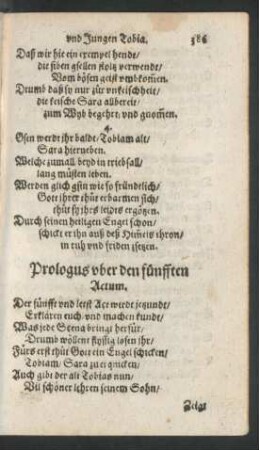 vnd Jungen Tobia. 386
Daß wir hie ein exempel hendt/
die siben gsellen stoltz verwendt/
Vom bösen geist vmbkommen.
Drumb daß sy nur zur vnkeischheit/
die keische Sara allbereit/
zum Wyb begehrt, vnd gnommen.
4.
Gsen werdt ihr baldt/ Tobiam alt/
Sara hierneben.
Welche zumall beyd in triebsall/
lang müßen leben.
Werden glich gsin wie so fründelich/
Gott ihrer thüt erbarmen sich/
thüt sy ihrs leides ergötzen.
Durch seinen heiligen Engel schon/
schickt er ihn auß deß Himels thron/
in ruh vnd friden setzen.
Prologus vber den fünfften
Actum.
Der fünfft vnd letst Act wirdt jetzundt/
Erklären euch/ vnd machen kundt/
Was jede Scena bringt herfür/
Drumb wöllent flyssig losen ihr/
Fürs erst thüt Gott ein Engel schicken/
Tobiam/ Sara zu erquicken/
Auch gibt der alt Tobias nun/
Vil schöner lehren seinem Sohn/
Zeigt